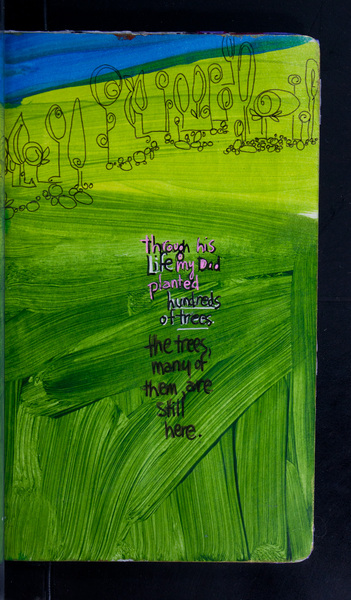 through his
Life my Dad
planted
hundreds
of trees.
the trees,
many of
them, are
still
here.